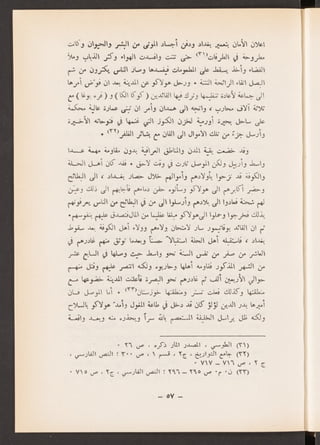 اعلان الأمان بتعمير بغداد ودفن أجساد الموتى من البشر والحيوان وكانت
مطروحة في الطرقات(٣١) حتى نتنت وأفسدت الهواء وكثر الذباب وملأ
الفضاء وأخذ يسقط على المطعومات فيفسدها وصار الناس يكثرون من شم
البصل اتقاء الرائحة النتنة • ورحل هولاكو عن المدينة بعد ان فوض أمرها
الى جماعة لاعادة تنظيمها وترك فيها القائدين ( كوكا الكا ) و ( قره بوغا ) مع
ثلاثة آلاف محارب • واتجه الى همدان وأمر ان تبنى عمارة عالية محكمة
على ساحل بحيرة أورمية لخزن الكنوز التي غنمها في فتوحاته الأخيرة
وأرسل جزءً من تلك الاموال الى القان مع بشائر الظفر(٣٢) •
وقد خضعت بقية المدن والمناطق العراقية بدون مقاومة مهمة عدا
واسط وأربيل ولكن الموصل ثارت في وقت لاحق • فقد كان أهل الحلة
والكوفة قد نزحوا بأولادهم وأموالهم خلال حصار بغداد ، الى البطائح
وحضر أكابرهم الى هولاكو وسألوه حقن دماءهم فأجابهم الى ذلك وعين
لهم شحنة فعادوا الى بلادهم وأرسلوا الى من في البطائح من الناس يعرفونهم
بذلك فخرجوا وحملوا الى هولاكو مبلغا عظيما من المال فتصدق عليهم بنفوسهم •
ثم ان القائد بوقاتيمور سار لامتحان ولاءهم وولاء أهل الكوفة بعد سقوط
بغداد ، فاستقبله أهل الحلة استقبالاً حسناً وبعدما توثق منهم غادرهم في
العاشر من صفر من نفس السنة نحو واسط حيث وصلها في السابع عشر
من الشهر المذكور فقاومه أهلها وحاربوه ولكنه انتصر عليهم وقتل منهم
حوالي الأربعين ألف ثم غادرهم نحو البصرة فأعلنت المدينة خضوعها مع
منطقتها وكذلك فعلت تستر ومنطقتها خوزستان(٣٣) • أما الموصل فان
أميرها بدر الدين لؤلؤ كان قد دخل في طاعة المغول وأمد هولاكو بالسلاح
ولكنه ظل يراسل الخليفة المستعصم بالله سراً ويحذره منه وبعد واقعة
(٣١) الطوسي ، المصدر المار ذكره ، ص ٢٦ •
(٣٢) جامع التواريخ ، ج٢ ، قسم ١ ، ص ٣٠٠ ؛ النص الفارسي ،
ج ٢ ، ص ٧١٦ - ٧١٧ •
(٣٣) ن٠ م٠ ص ٢٩٥ - ٢٩٦ ؛ النص الفارسي ، ج٢ ، ص ٧١٥ •
- ٥٧ -